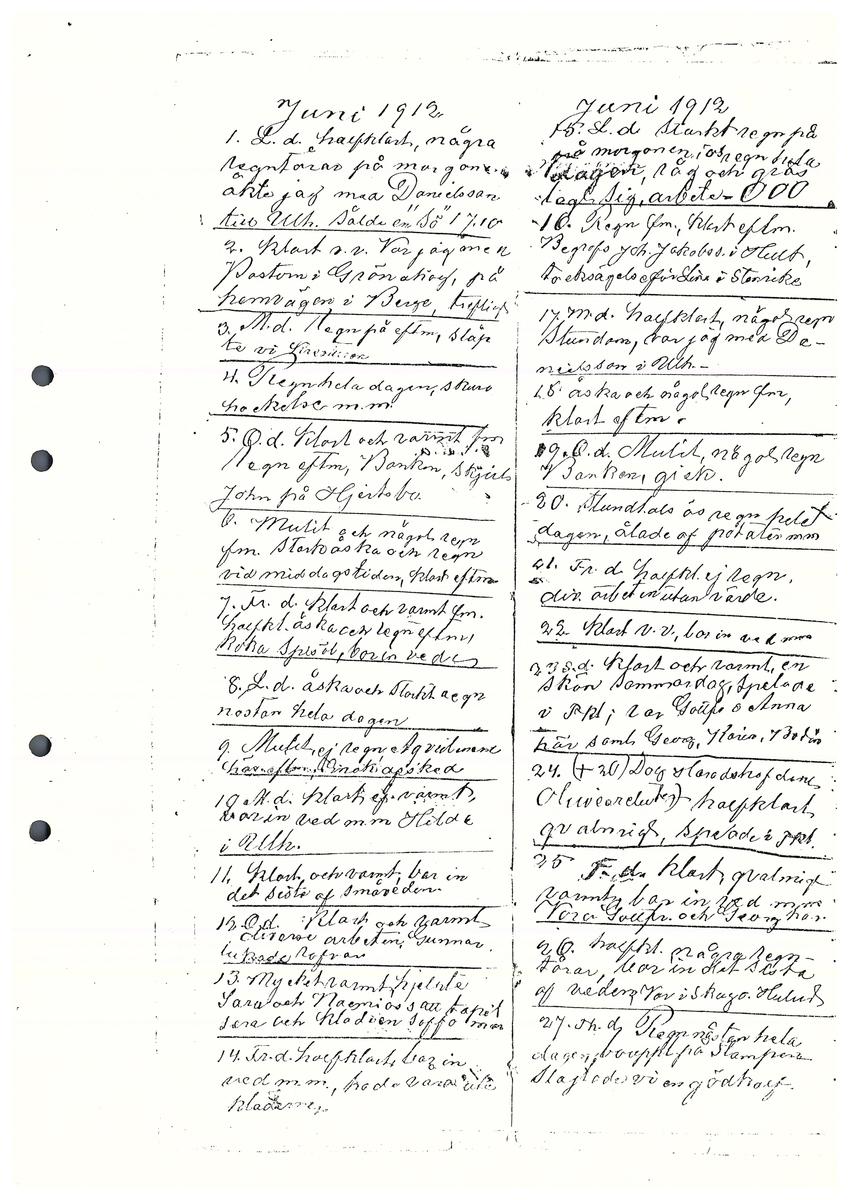 Juni 1912
1. L.d. halfklart, några
regntårar på morgonen
åkte jag med Danielsson
till Ulh. Sålde en "Sö" 17.10
2. Klart v.v. Var jag med
Pastorn i Grönahog, på
hemvägen i Berge,
3. M.d. Regn på eftm, släp
te vi
4. Regn hela dagen, skuro
hackelse m.m.
5. O.d. Klart och varmt fm
regn eftm, Banken,
John på Hjertsbo
6. Mulit och någol regn
fm. Stark åska och regn
vid middagstiden, klart eftm
7. Fr. d. Klart och varmt fm.
halfkl. åska och regn eftm,
koka spisöl, bar in ved
8. L.d. åska och starkt regn
nästan hela dagen
9. Mulit, ej regn
10. M.d. Klart ej varmt,
bar in ved m.m Hilda
i Ulh.
11. Klart och varmt, bar in
det sista af småveden
12. O.d. Klart och varmt
diverse arbeten, Gunnar
lukade rofvor
13. Mycket varmt, hjelpte
Sara och Naemi oss att tapet
sera och kläd en soffa m.m
14. Fr.d. halfklart, bar in
ved m.m., hade vara ute
kläderna
Juni 1912
15. L.d Starkt regn på
på morgonen, ösregn hela
dagen, råg och gräs
lagt sig, arbete = 000
16. Regn fm., klart eftm.
Begrofs Joh. Jakobss. i Hult,
tacksägelse för Lina i Stenrike
17. M.d. halfklart, någol regn
Stundom, var jag med Da-
nielsson i Ulh. -
18. åska och någol regn fm,
klart eftm.
19. O.d. Mulit, någol regn
Banken, gick.
20. Stundtals ös regn helet
dagen, ålade af potäter m m
21. Fr. d. halfkl. ej regn,
div. arbeten utan värde.
22. Klart v.v, bar in ved m m
23 S.d. Klart och varmt, en
skön sommardag, spelade
i Fkl; var Goufr o Anna
här samt Georg, Karin,
24. (+20) Dog Haradshofdene
halfklart
qvalmigt, spelade i Fkl.
25 T.d. Klart, qvalmigt
varmt, bar in ved m m
Vora Goufr. och Georg här
26. halfkl. några regn-
tårar, bar in det sista
af veden, Var i Skogo. Hulu
27. Th. d. Regn nästan hela
dagen, på Stampera
Slagtade vi en gödkalf.